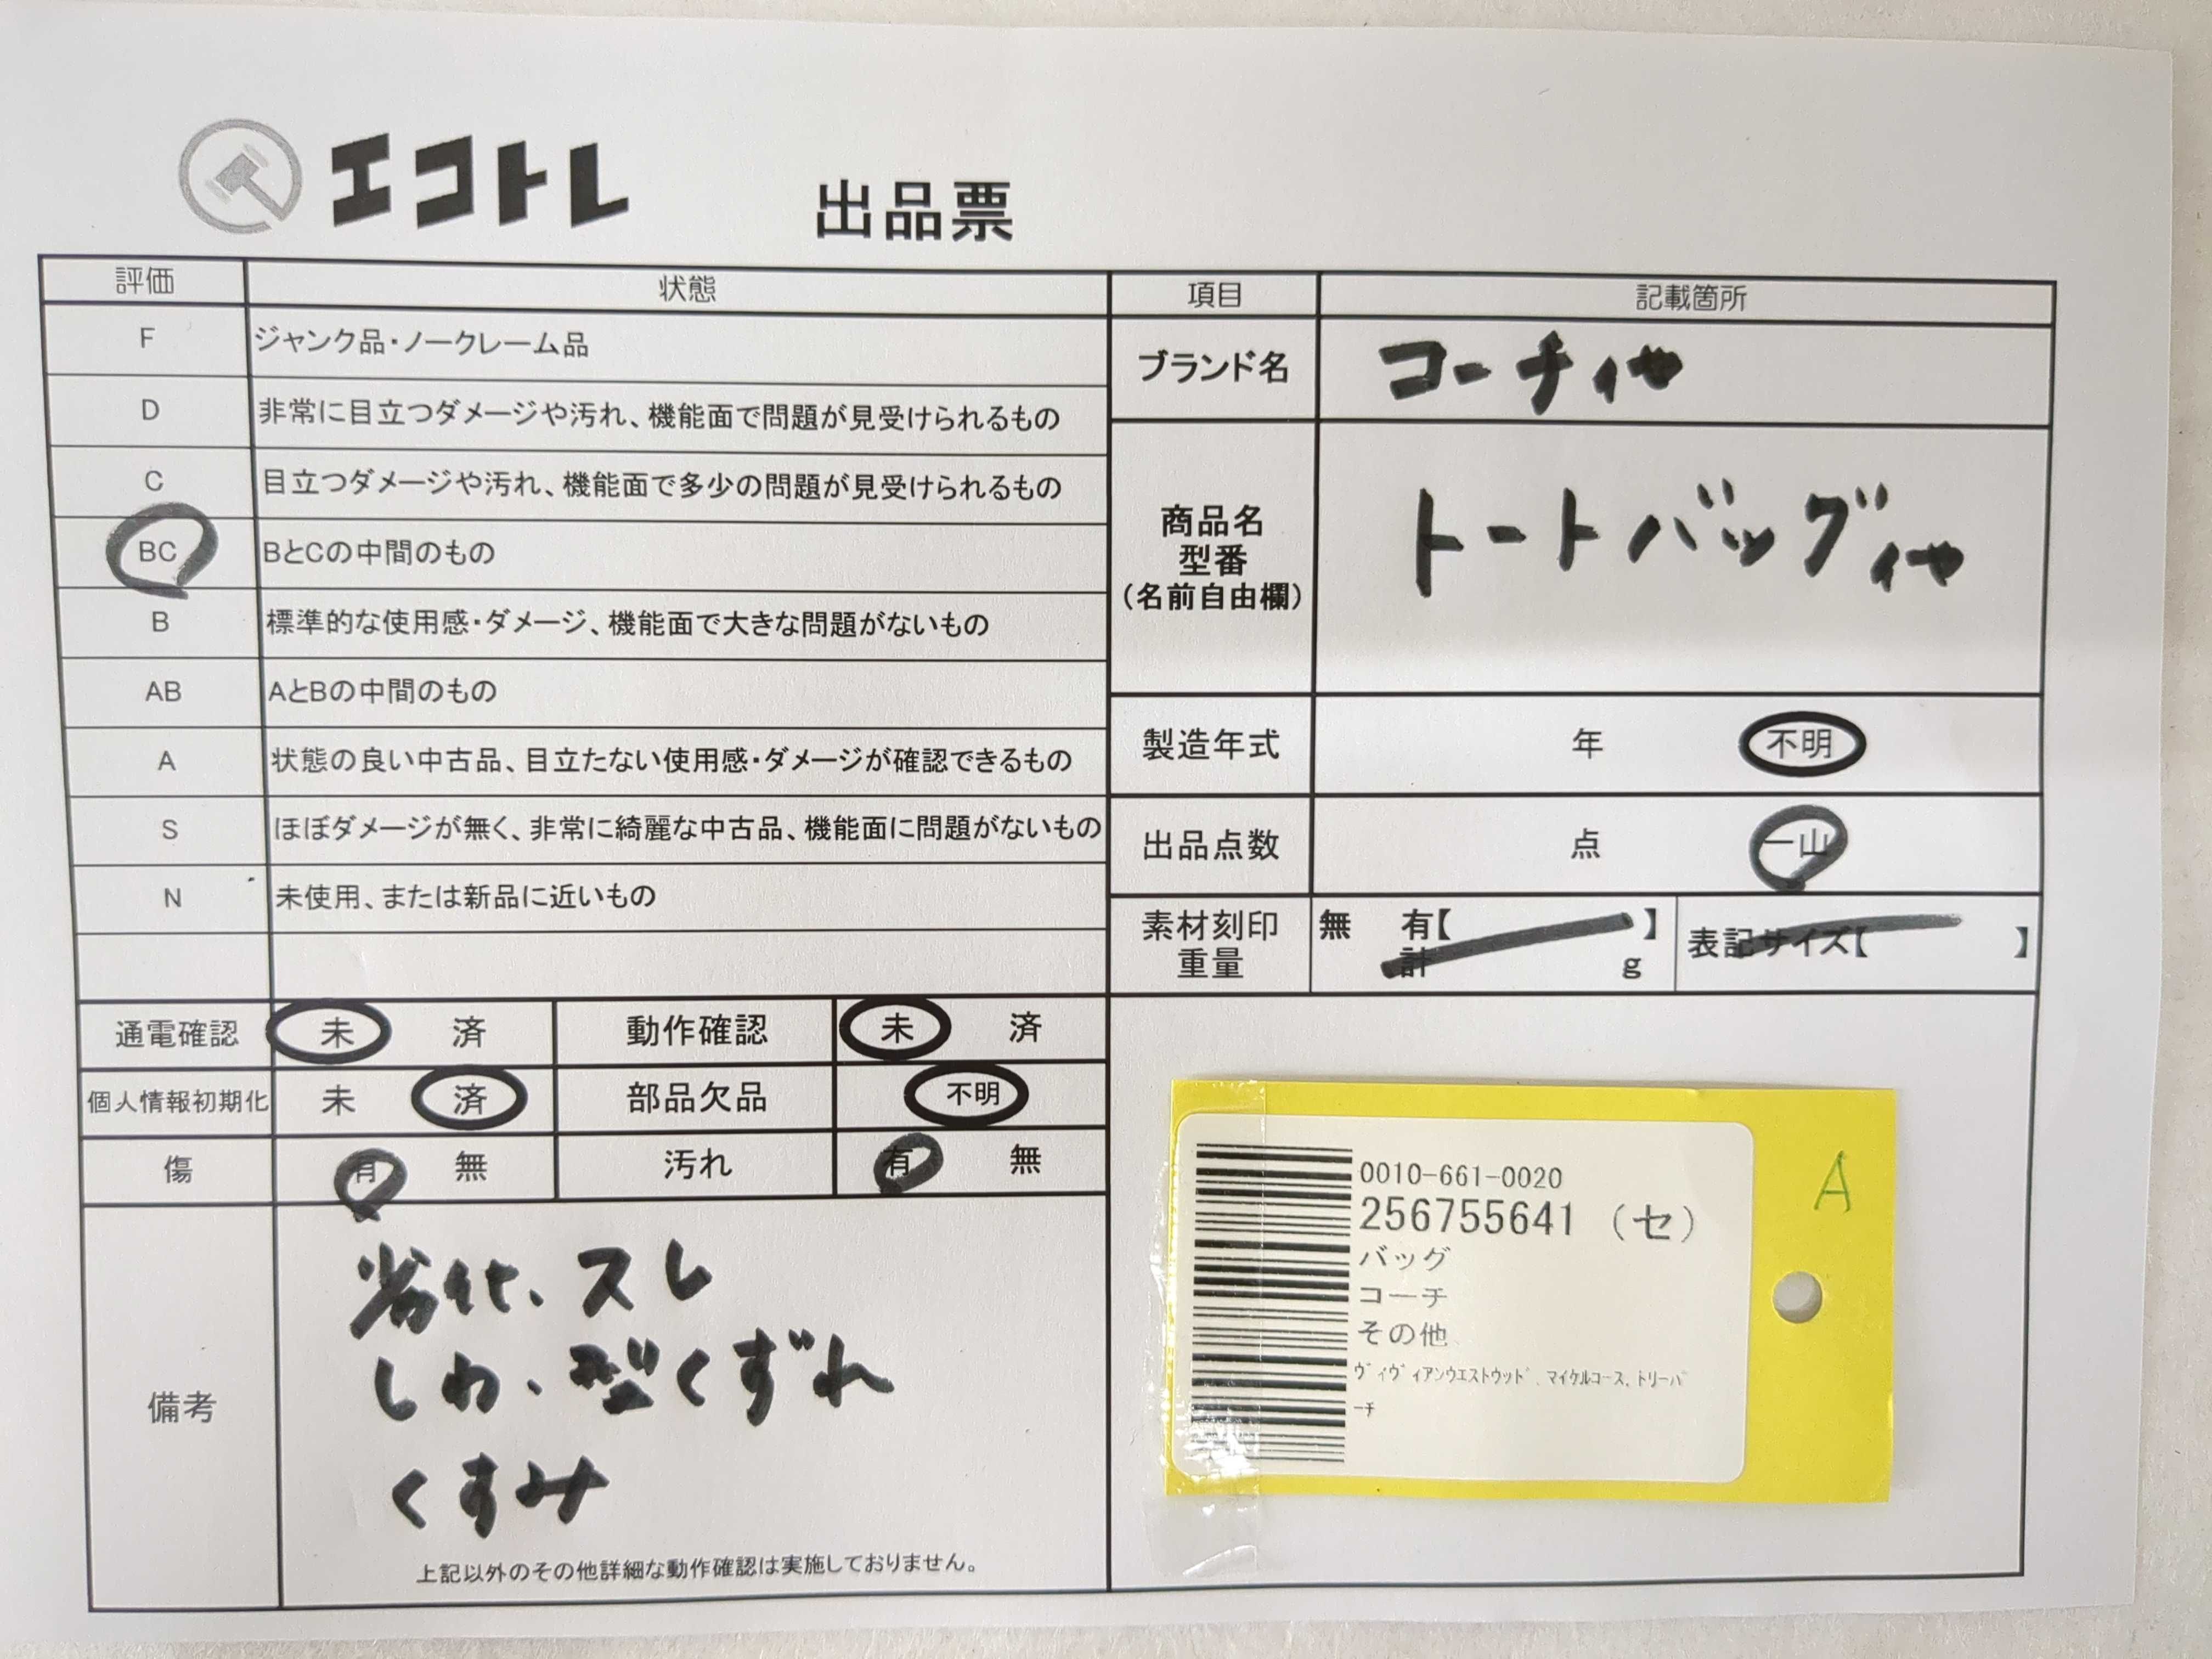 エコトレ 出品票
評価 状態
F ジャンク品・ノークレーム品
D 非常に目立つダメージや汚れ、機能面で問題が見受けられるもの
C 目立つダメージや汚れ、機能面で多少の問題が見受けられるもの
BC BとCの中間のもの
B 標準的な使用感・ダメージ、機能面で大きな問題がないもの
AB AとBの中間のもの
A 状態の良い中古品、目立たない使用感・ダメージが確認できるもの
S ほぼダメージが無く、非常に綺麗な中古品、機能面に問題がないもの
N 未使用、または新品に近いもの
通電確認 未 済 動作確認 未 済
個人情報初期化 未 済 部品欠品 不明
傷 有 無 汚れ 有 無
備考
劣化、スレ
しわ、型くずれ
くすみ
上記以外のその他詳細な動作確認は実施しておりません。
項目 記載箇所
ブランド名 コーチ他
商品名
型番
(名前自由欄)
トートバッグ他
製造年式 年 不明
出品点数 点 一山
素材刻印
重量
無 有【 】
計 g
表記サイズ【 】
0010-661-0020
256755641 (セ)
バッグ
コーチ
その他
ヴィヴィアンウエストウッド、マイケルコース、トリーバ
ーチ
A